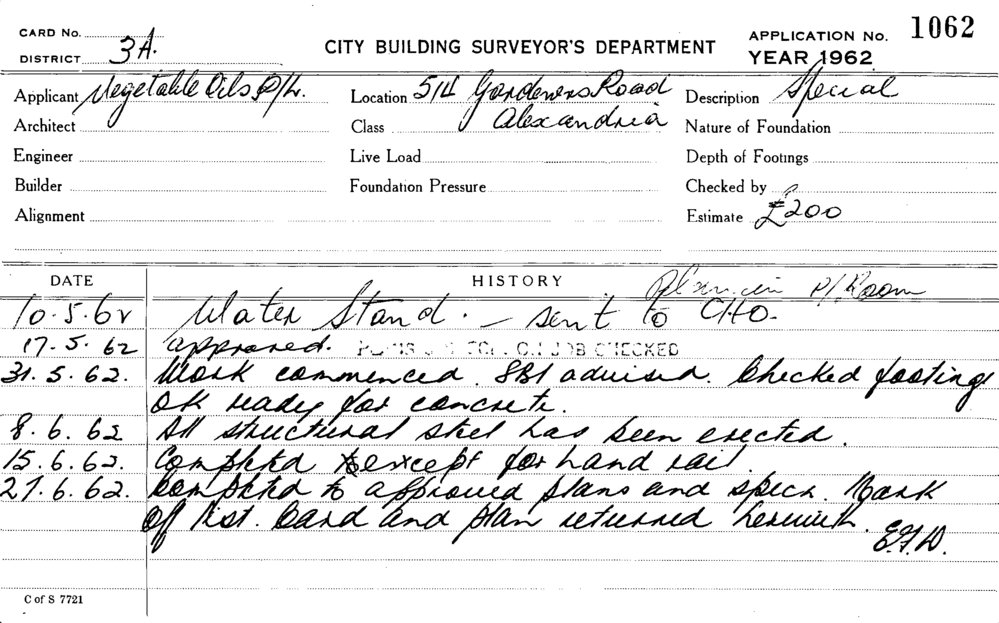 CARD No.
DISTRICT 3A.
CITY BUILDING SURVEYOR'S DEPARTMENT
APPLICATION No. 1062
YEAR 1962
Applicant Vegetable Oils P/L. Location 514 Gardeners Road Description Special
Architect Class Alexandria Nature of Foundation
Engineer Live Load Depth of Footings
Builder Foundation Pressure Checked by
Alignment Estimate £200
DATE HISTORY Plan in P/Room
10.5.62 Water Stand. — sent to CHO.
17.5.62 approved. PLANS ON JOB CHECKED
31.5.62. Work commenced. SBI advised. Checked footings
OK ready for concrete.
8.6.62 All structural steel has been erected.
15.6.62. Completed except for hand rail.
27.6.62. Completed to approved plans and specn. Mark
off list. Card and plan returned herewith.
C of S 7721